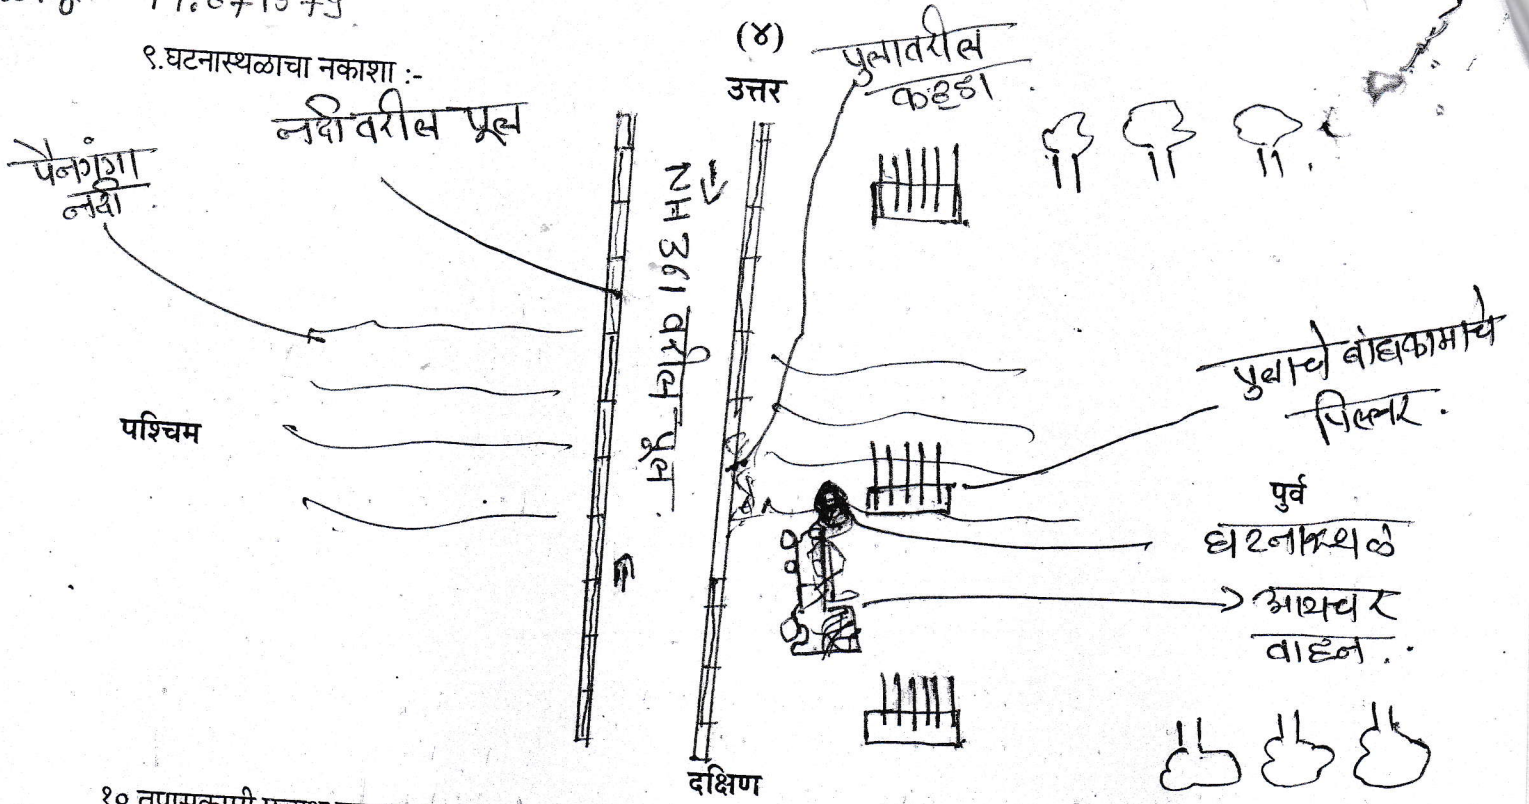 (४)
९.घटनास्थळाचा नकाशा :-
उत्तर
पुलावरील
कठडा
नदीवरील पूल
पैनगंगा
नदी
NH 361 वरील पूल
पुलाचे बांधकामाचे
पिल्लर.
पश्चिम
पुर्व
घटनास्थळ
आयचर
वाहन..
दक्षिण